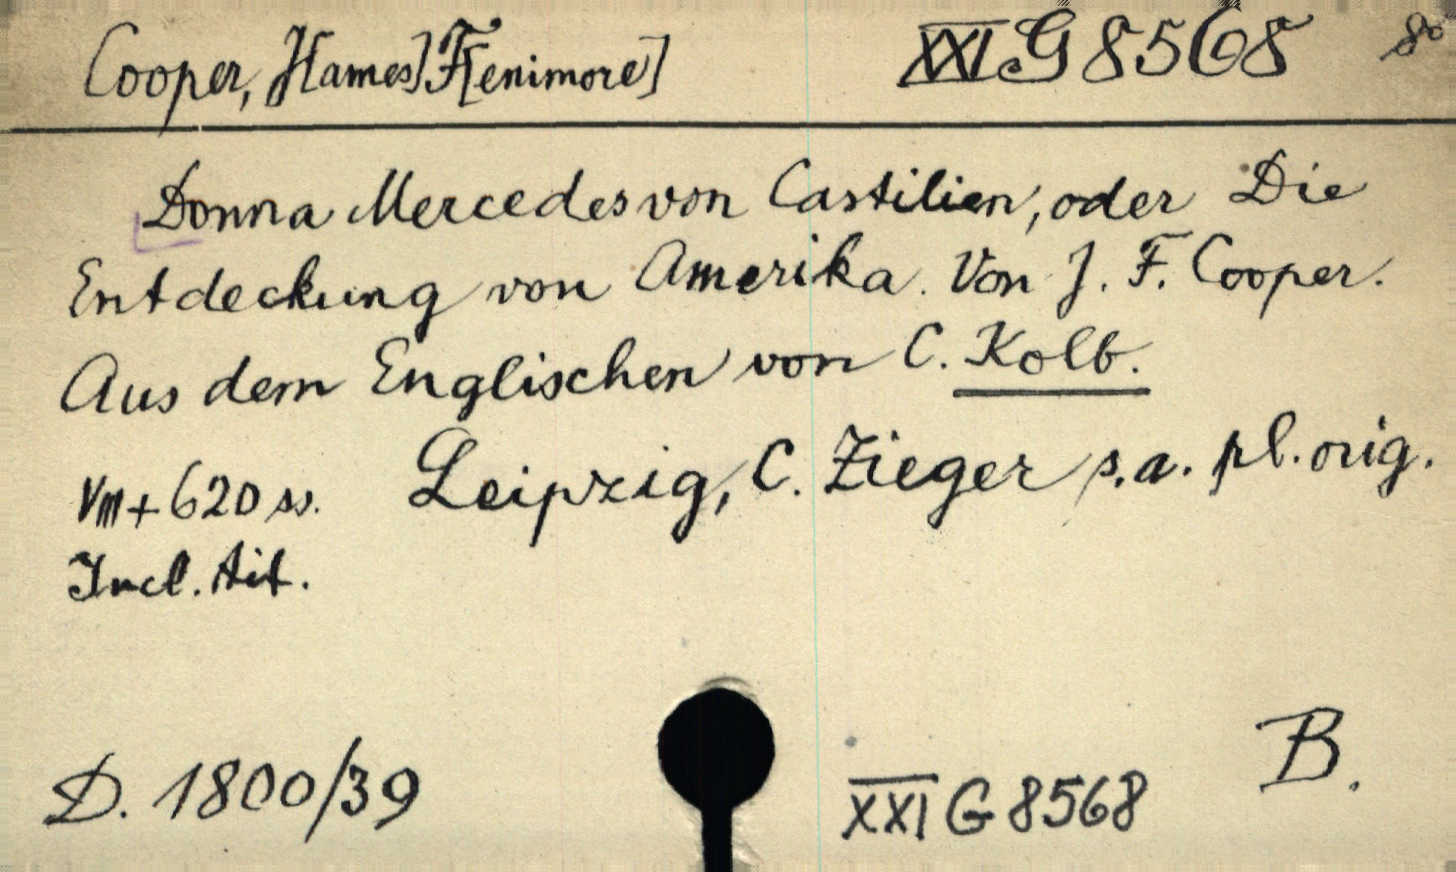 Cooper, J[ames] F[enimore] XXI G 8568 8°
Donna Mercedes von Castilien, oder Die
Entdeckung von Amerika. Von J. F. Cooper.
Aus dem Englischen von C. Kolb.
VIII+620 ss. Leipzig, C. Zieger s.a. pl. orig.
Incl. tit.
D. 1800/39 XXI G 8568 B.